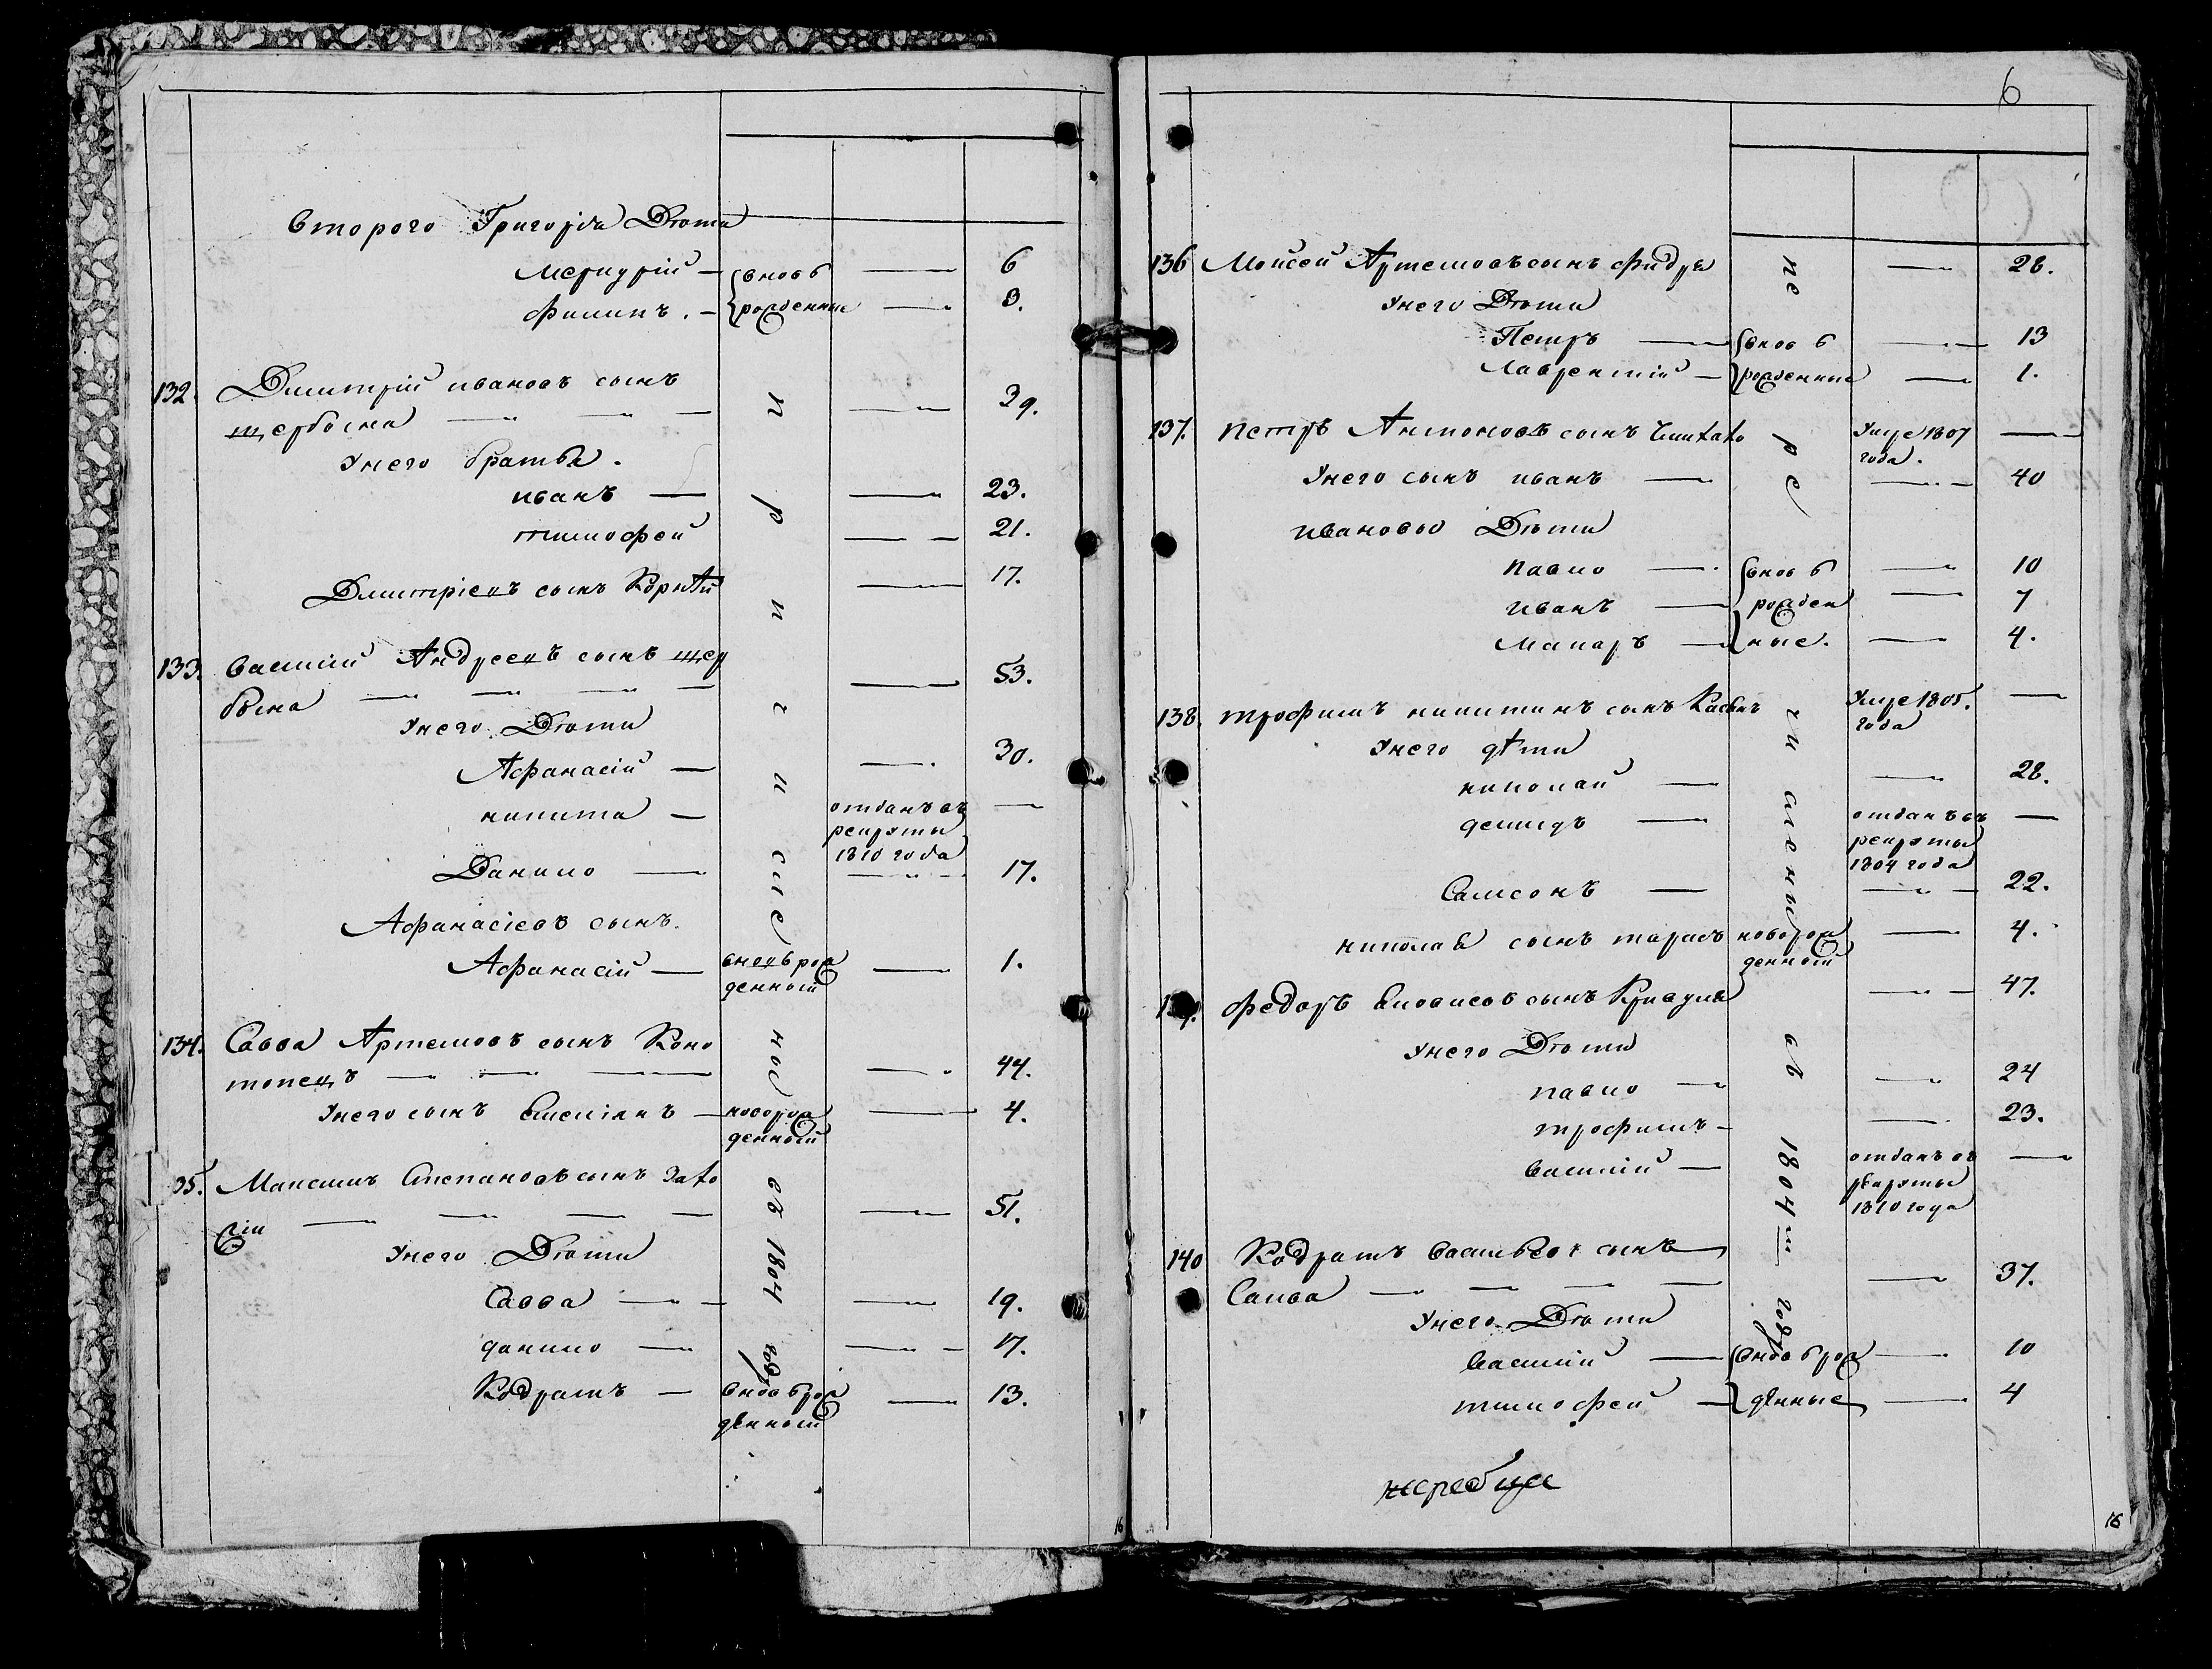 втораго Григорія Дѣти
Меркурій — вновь — 6
Филипъ. — рожденные — 3.
132. Дмитрій ивановъ сынъ
щербина — — — 39.
Унего братья.
иванъ — — 23.
тимофей — — 21.
Дмитріевъ сынъ Корнѣй — 17.
133. Василій Андреевъ сынъ щер
бина — — — — — 53.
Унего Дѣти
Афанасій — — 30.
никита — отданъ въ —
рекруты
1810 года
Данило — — 17.
Афанасіевъ сынъ.
Афанасій — вновьрож — 1.
денный
134. Савва Артемовъ сынъ Коно
топецъ — — — — 44.
Унего сынъ Емеліянъ — новорож — 4.
денный
35. Максимъ Степановъ сынъ
— — — — — 51.
Унего Дѣти
Савва — — — 19.
данило — — 17.
Кодратъ — вновьрож — 13.
денный
въ 1804 году
6
136 Мойсей Артемовъ сынъ — 28.
Унего Дѣти
Петръ — вновь — 13
Лаврентій — рожденные — 1.
137. петръ Антоновъ сынъ Умре 1807 —
года.
Унего сынъ иванъ — — 40
ивановы Дѣти
павло — вновь — 10
иванъ — рожден — 7
Макаръ — ные. — 4.
138. трофимъ никитинъ сынъ Умре 1805. —
года
Унего дѣти
николай — — 28.
демидъ — отданъ въ —
рекруты
1804 года
Самсонъ — — 22.
николая сынъ тарасъ новорож — 4.
денный
139. федоръ сынъ — 47.
Унего Дѣти
павло — — 24
трофимъ — — 23.
василій — отданъ въ —
рекруты
1810 года
140 Кодратъ васильевъ сынъ
— — — — — 37.
Унего Дѣти
василій — вновьрож — 10
тимофей — денные — 4
въ 1804 м году
16